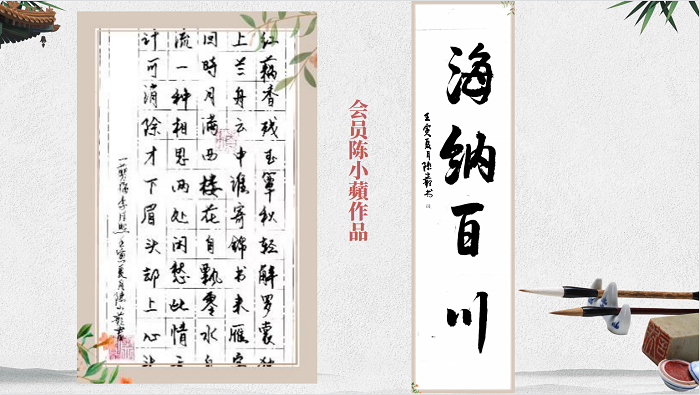 海纳百川
壬寅夏月陈蘋书
会员陈小蘋作品
红藕香残玉簟秋轻解罗裳独
上兰舟云中谁寄锦书来雁字
回时月满西楼花自飘零水自
流一种相思两处闲愁此情无
计可消除才下眉头却上心头
一剪梅李清照壬寅夏月陈小蘋书